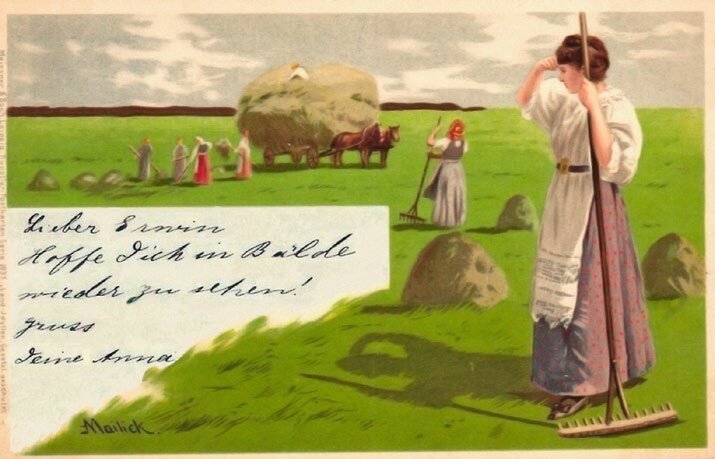 Lieber Erwin
Hoffe Dich in Bälde
wieder zu sehen!
gruss
Deine Anna
Mailick